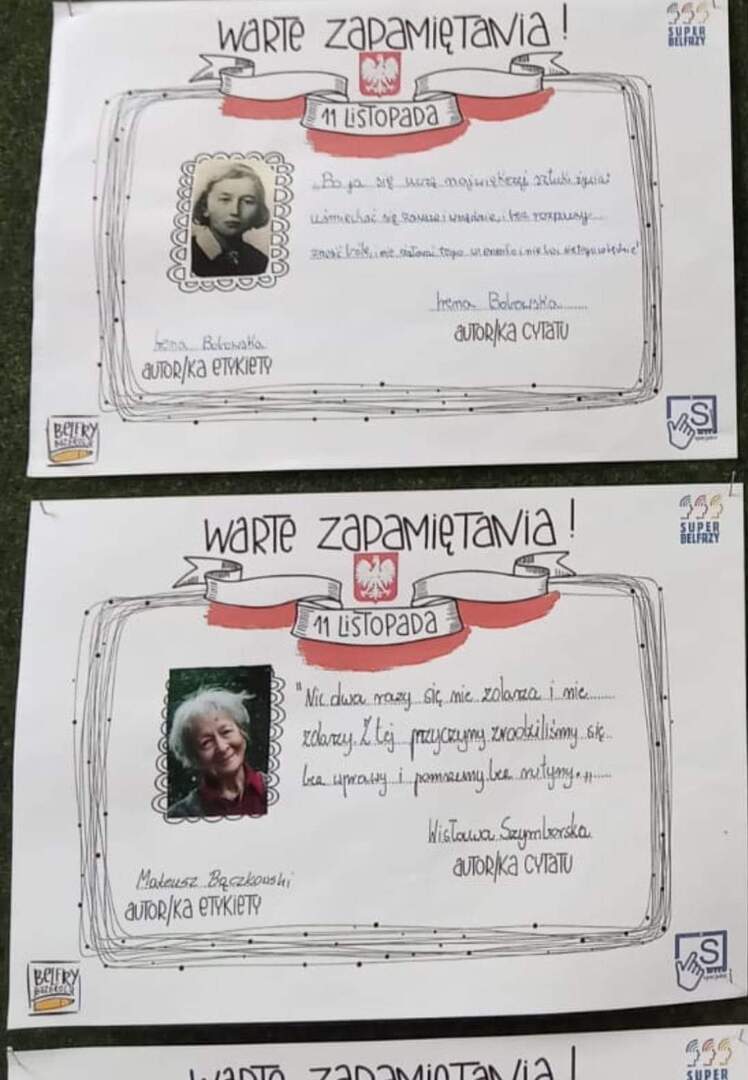 WARTE ZAPAMIĘTANIA!
SUPER
BELFRZY
11 LISTOPADA
„Bo ja się uczę największej sztuki życia:
uśmiechać się zawsze i wszędzie i bez rozpaczy
znosić bóle, i nie żałować tego co przeszło i nie bać się tego co będzie"
Irena Bobowska
AUTOR/KA CYTATU
Irena Bobowska
AUTOR/KA ETYKIETY
BELFRY
S
WARTE ZAPAMIĘTANIA!
SUPER
BELFRZY
11 LISTOPADA
"Nic dwa razy się nie zdarza i nie
zdarzy. Z tej przyczyny zrodziliśmy się
bez wprawy i pomrzemy bez rutyny."
Wisława Szymborska
AUTOR/KA CYTATU
Mateusz Bączkowski
AUTOR/KA ETYKIETY
BELFRY
S
WARTE ZAPAMIĘTANIA!
SUPER